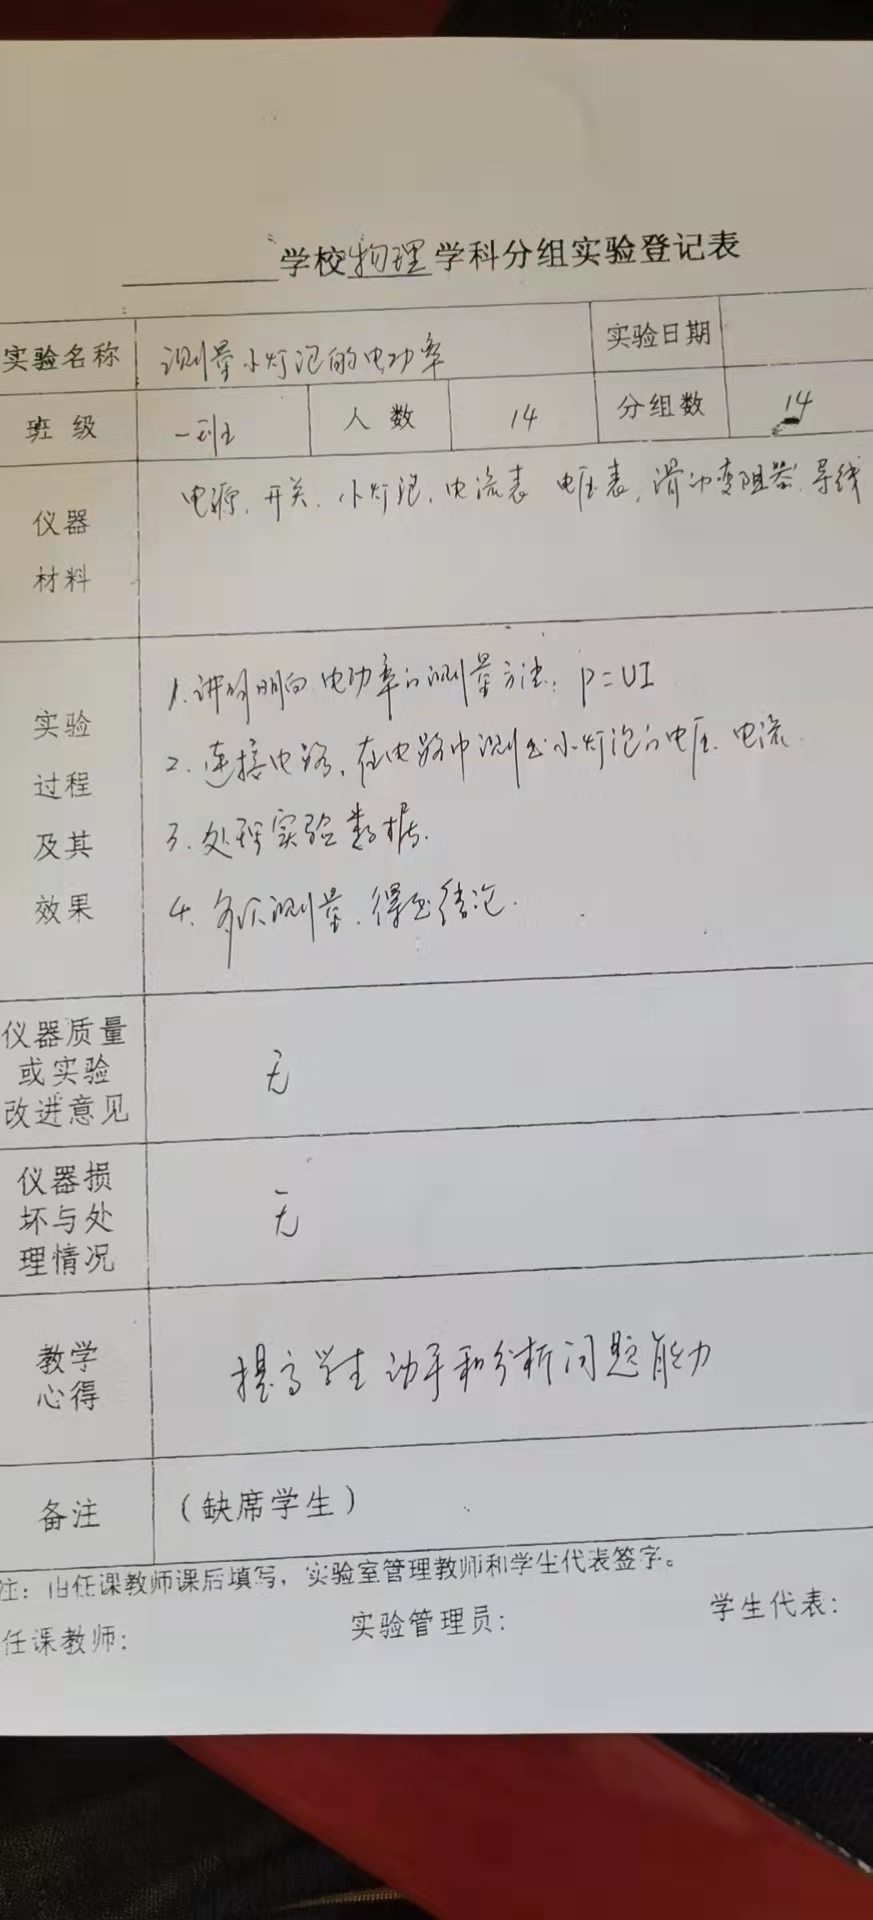 学校物理学科分组实验登记表
实验名称 测量小灯泡的电功率 实验日期
班级 一班 人数 14 分组数 14
仪器材料 电源、开关、小灯泡、电流表 电压表、滑动变阻器、导线
实验过程及其效果
1. 讲明白电功率的测量方法:P=UI
2. 连接电路,在电路中测出小灯泡的电压、电流
3. 处理实验数据.
4. 多次测量,得出结论.
仪器质量或实验改进意见 无
仪器损坏与处理情况 无
教学心得 提高学生动手和分析问题能力
备注 (缺席学生)
注:由任课教师课后填写,实验室管理教师和学生代表签字。
任课教师: 实验管理员: 学生代表: